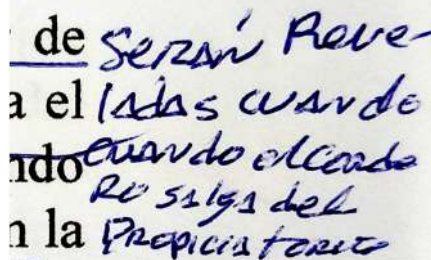 de Serán Reve-
a el ladas cuando
ndo cuando el corde
Ro salga del
n la Propiciatorio